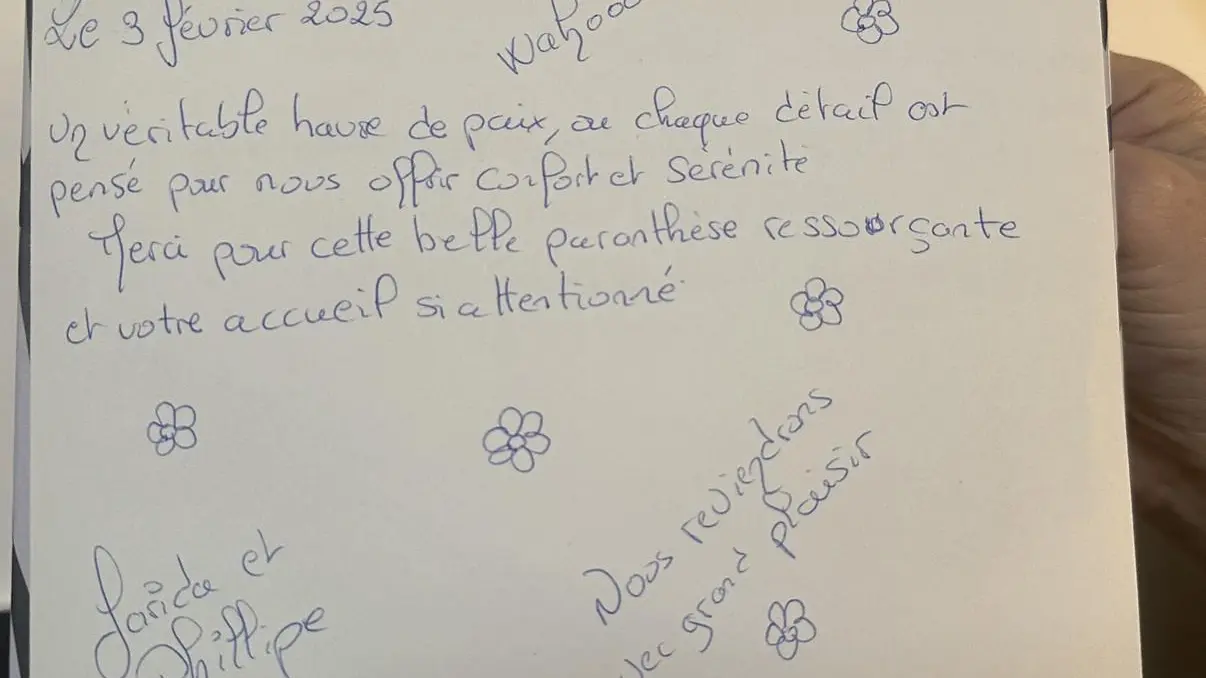 Le 3 février 2025
Wahooo
Un véritable havre de paix, ou chaque détail est
pensé pour nous offrir confort et sérénité
Merci pour cette belle paranthèse ressourçante
et votre accueil si attentionné
Nous reviendrons
avec grand plaisir
Farida et
Phillipe